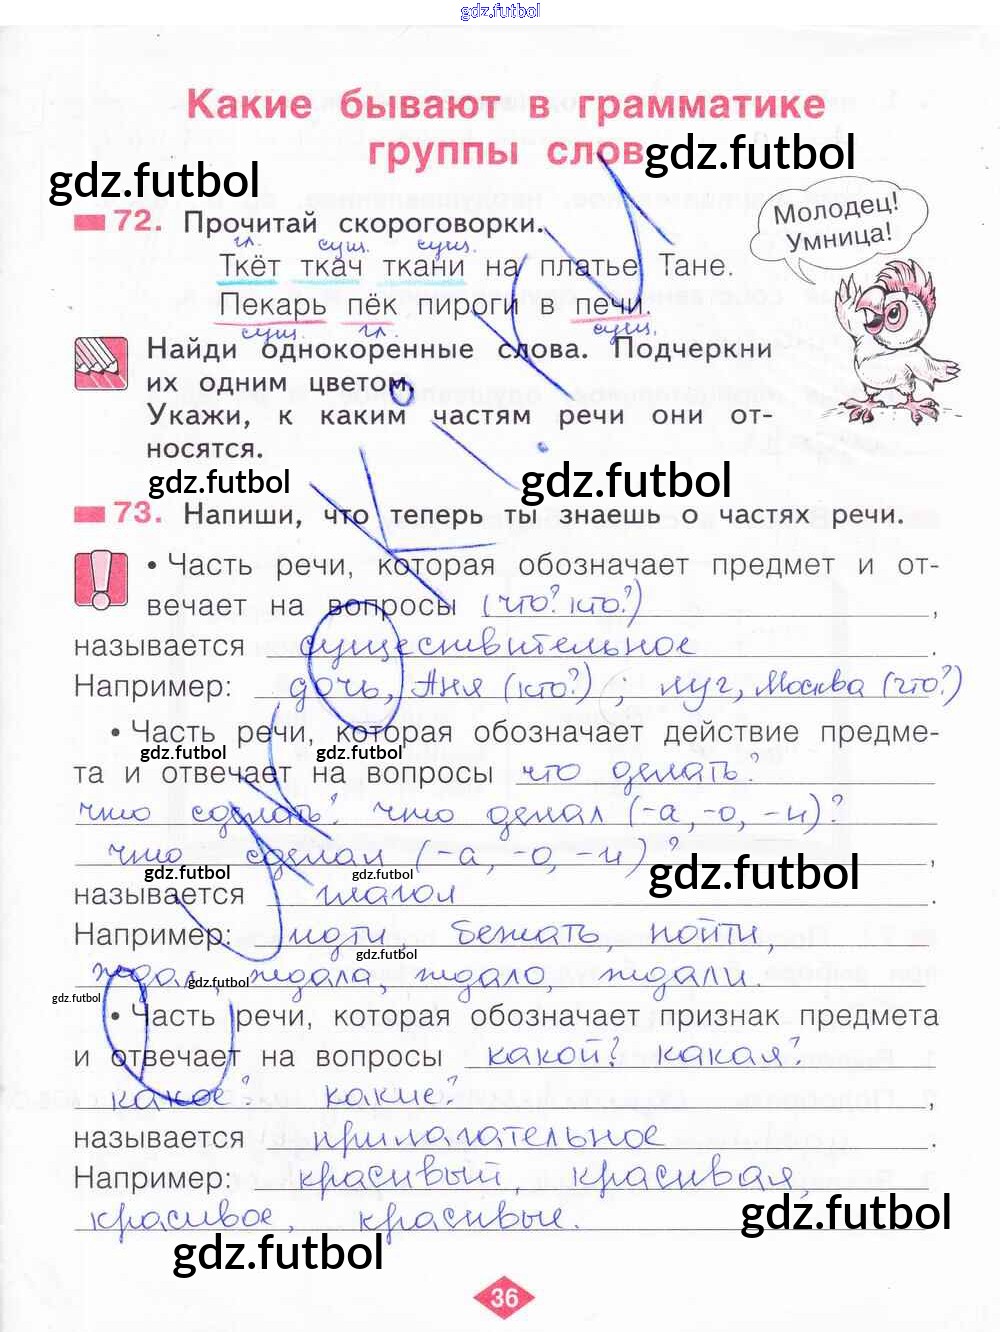 gdz.futbol
Какие бывают в грамматике
группы слов
gdz.futbol
gdz.futbol
72. Прочитай скороговорки.
Молодец!
Умница!
гл. сущ. сущ.
Ткёт ткач ткани на платье Тане.
Пекарь пёк пироги в печи.
сущ. гл. сущ.
Найди однокоренные слова. Подчеркни
их одним цветом.
Укажи, к каким частям речи они от-
носятся.
gdz.futbol
gdz.futbol
73. Напиши, что теперь ты знаешь о частях речи.
• Часть речи, которая обозначает предмет и от-
вечает на вопросы (что? кто?) ,
называется существительное .
Например: дочь, Аня (кто?) ; луг, Москва (что?)
• Часть речи, которая обозначает действие предме-
gdz.futbol gdz.futbol
та и отвечает на вопросы что делать?
что сделать? что делал (-а, -о, -и)?
что сделал (-а, -о, -и)? ,
gdz.futbol gdz.futbol gdz.futbol
называется глагол .
Например: идти, бежать, пойти,
gdz.futbol
ждал, ждала, ждало, ждали.
gdz.futbol gdz.futbol
• Часть речи, которая обозначает признак предмета
и отвечает на вопросы какой? какая?
какое? какие? ,
называется прилагательное .
Например: красивый, красивая,
красивое, красивые.
gdz.futbol
gdz.futbol
36